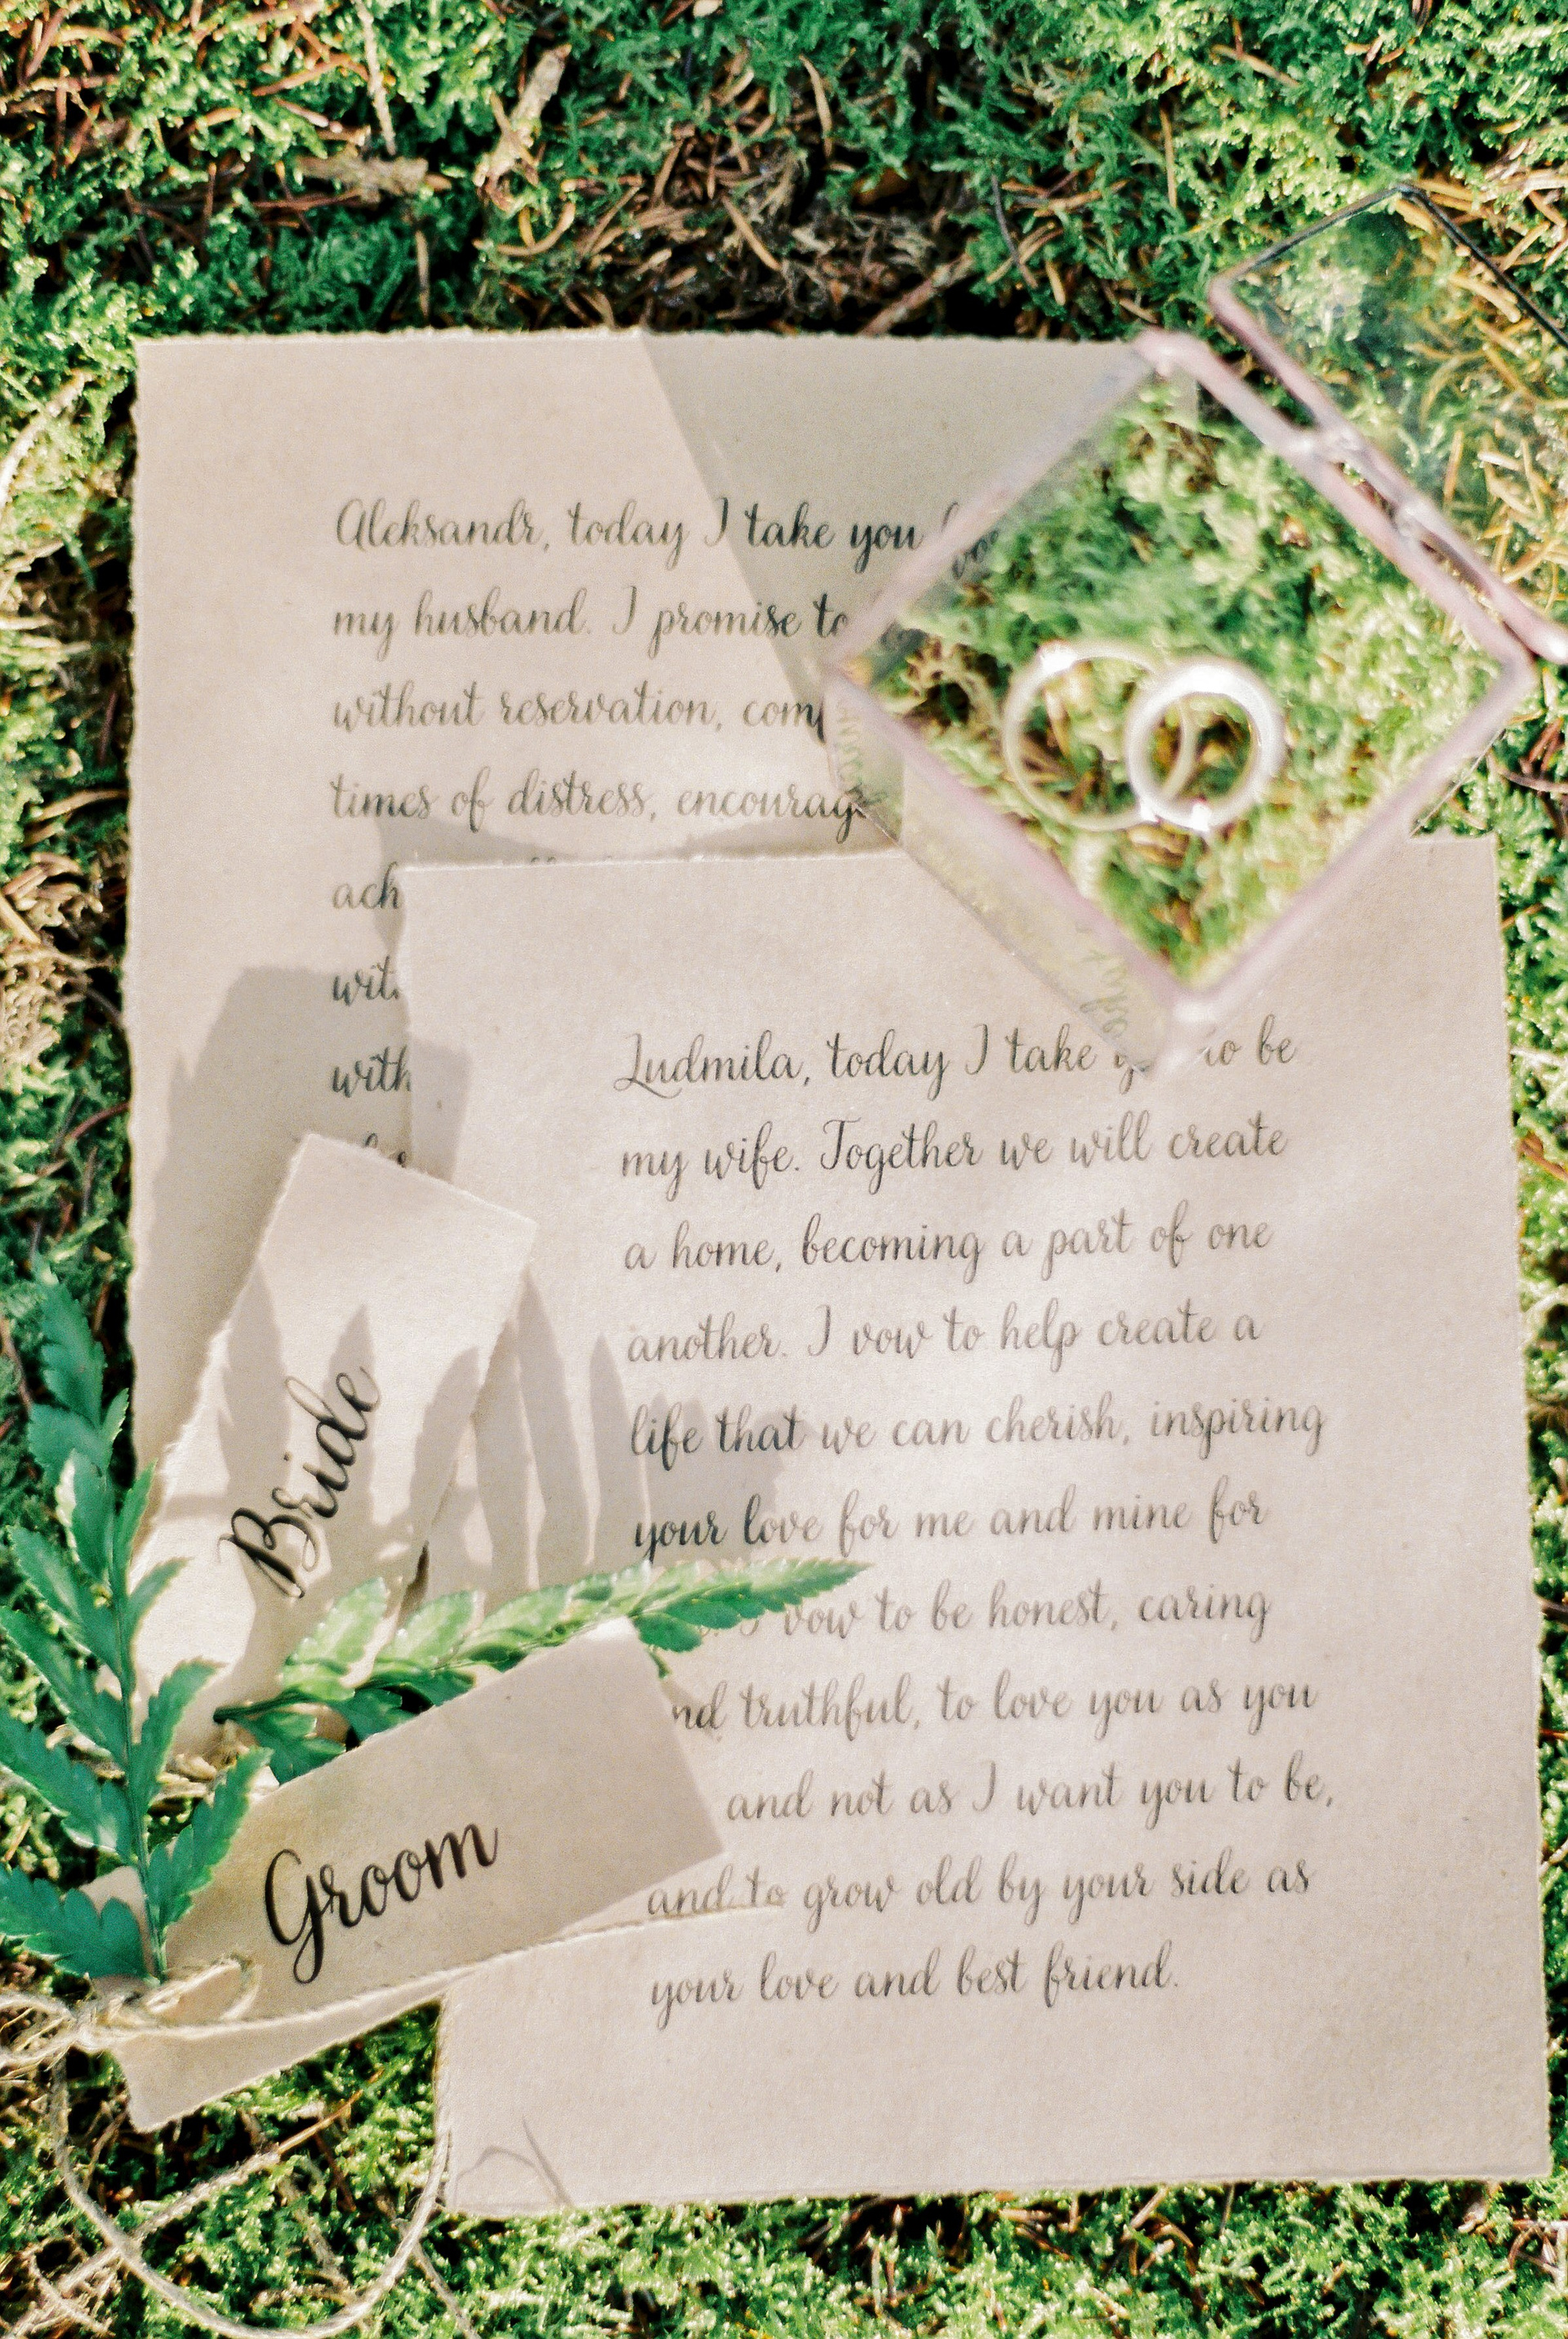 Aleksandr, today I take you
my husband. I promise to
without reservation,
times of distress,
Ludmila, today I take to be
my wife. Together we will create
a home, becoming a part of one
another. I vow to help create a
life that we can cherish, inspiring
your love for me and mine for
vow to be honest, caring
truthful, to love you as you
and not as I want you to be,
and to grow old by your side as
your love and best friend.
Bride
Groom